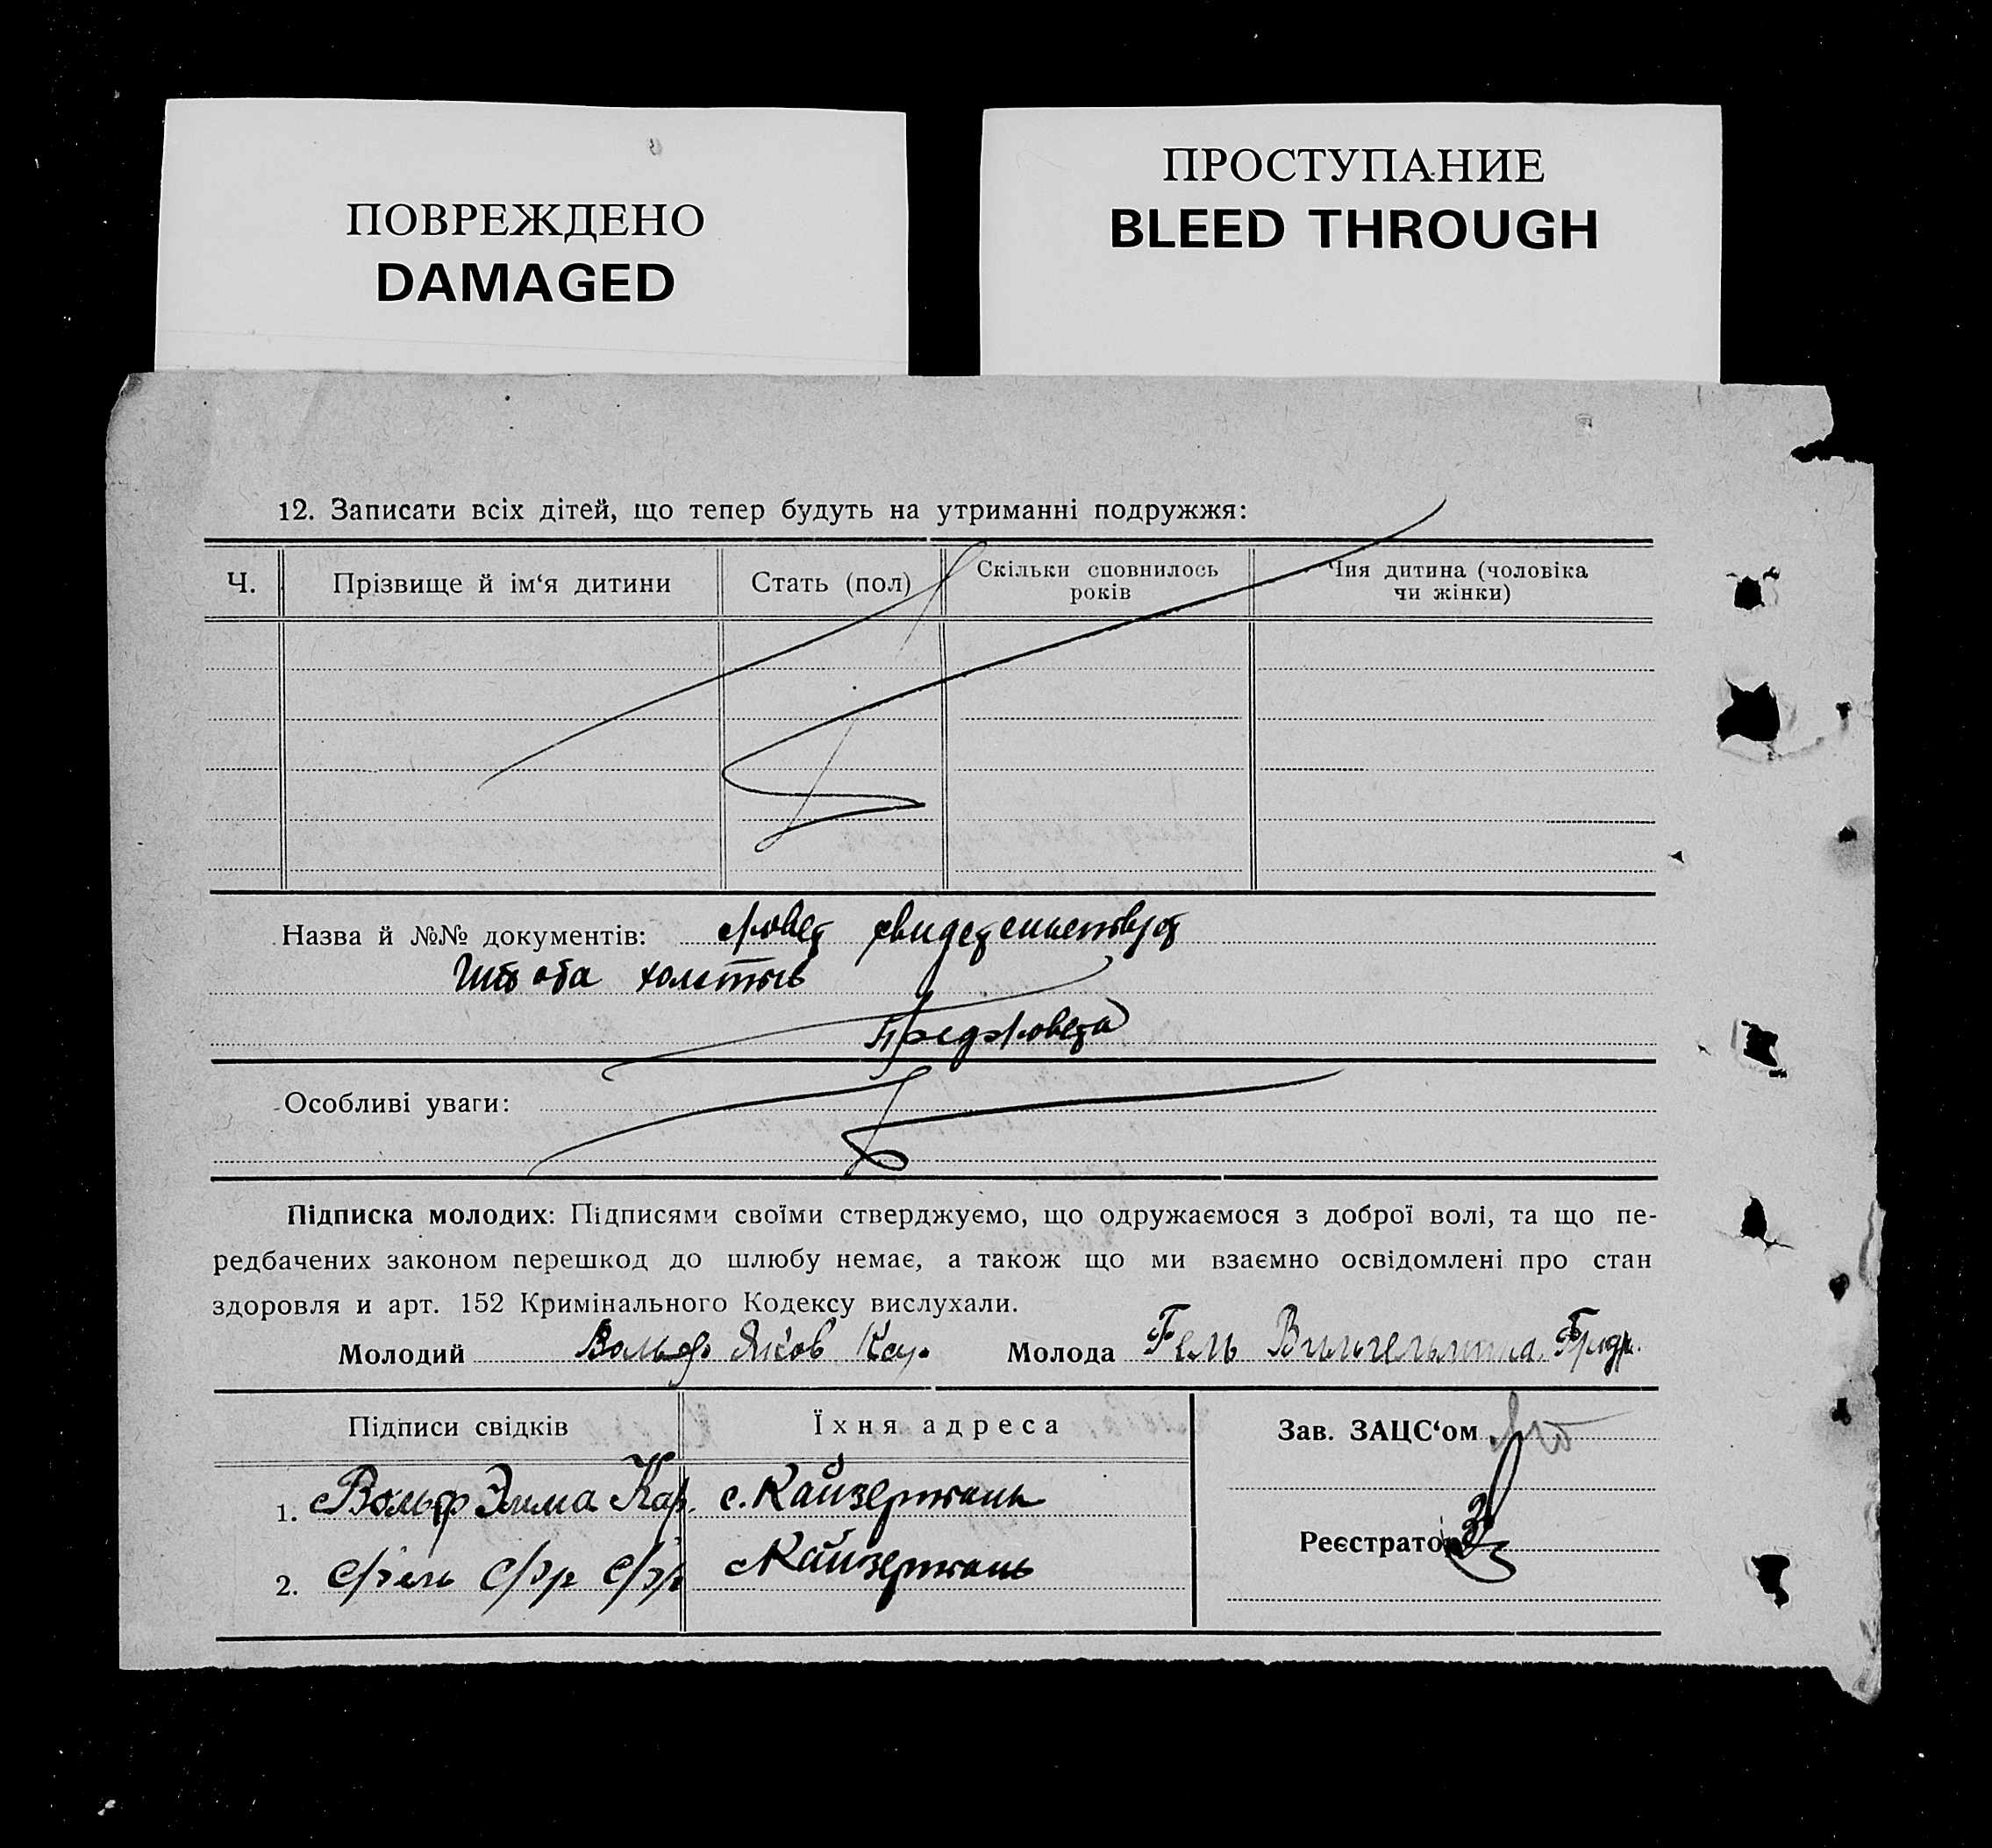 ПОВРЕЖДЕНО
DAMAGED
ПРОСТУПАНИЕ
BLEED THROUGH
12. Записати всіх дітей, що тепер будуть на утриманні подружжя:
Ч. Прізвище й ім‘я дитини Стать (пол) Скільки сповнилось років Чия дитина (чоловіка чи жінки)
Назва й №№ документів:
оба холосты
Особливі уваги:
Підписка молодих: Підписями своїми стверджуємо, що одружаємося з доброї волі, та що пе-
редбачених законом перешкод до шлюбу немає, а також що ми взаємно освідомлені про стан
здоровля и арт. 152 Кримінального Кодексу вислухали.
Молодий Вольф Яков Молода Гель Вильгельмина Фридр.
Підписи свідків Їхня адреса Зав. ЗАЦС‘ом
1. Вольф Эмма Кар. с. Кайзерталь
2. с Кайзерталь
Реєстратор